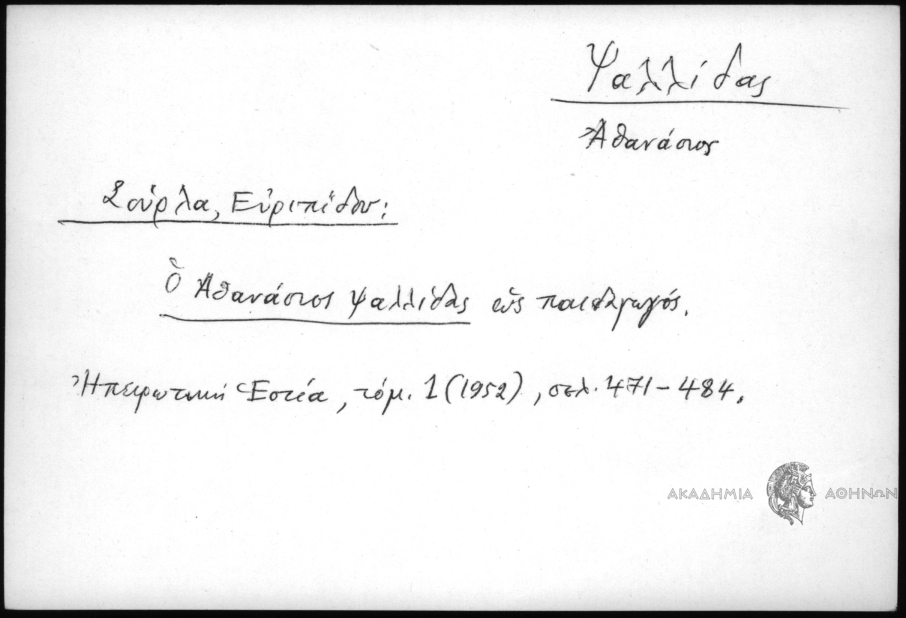 Ψαλλίδας
Ἀθανάσιος
Σούρλα, Εὐριπίδου:
Ὁ Ἀθανάσιος Ψαλλίδας ὡς παιδαγωγός.
Ἠπειρωτική Ἑστία, τόμ. 1 (1952), σελ. 471-484.
ΑΚΑΔΗΜΙΑ ΑΘΗΝΩΝ